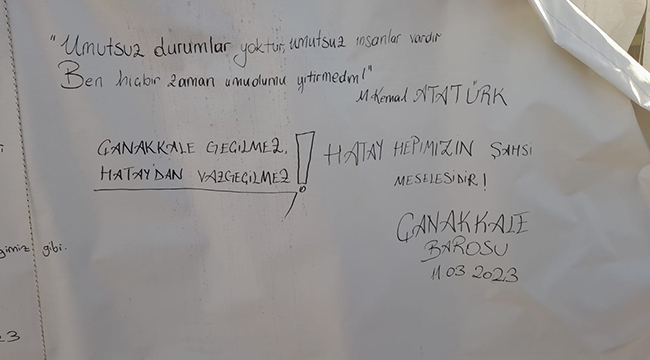 "Umutsuz durumlar yoktur, umutsuz insanlar vardır
Ben hiçbir zaman umudumu yitirmedim!"
M.Kemal ATATÜRK
ÇANAKKALE GEÇİLMEZ,
HATAY'DAN VAZGEÇİLMEZ!
HATAY HEPİMİZİN ŞAHSİ
MESELESİDİR!
ÇANAKKALE
BAROSU
11 03 2023
gimiz gibi.
23